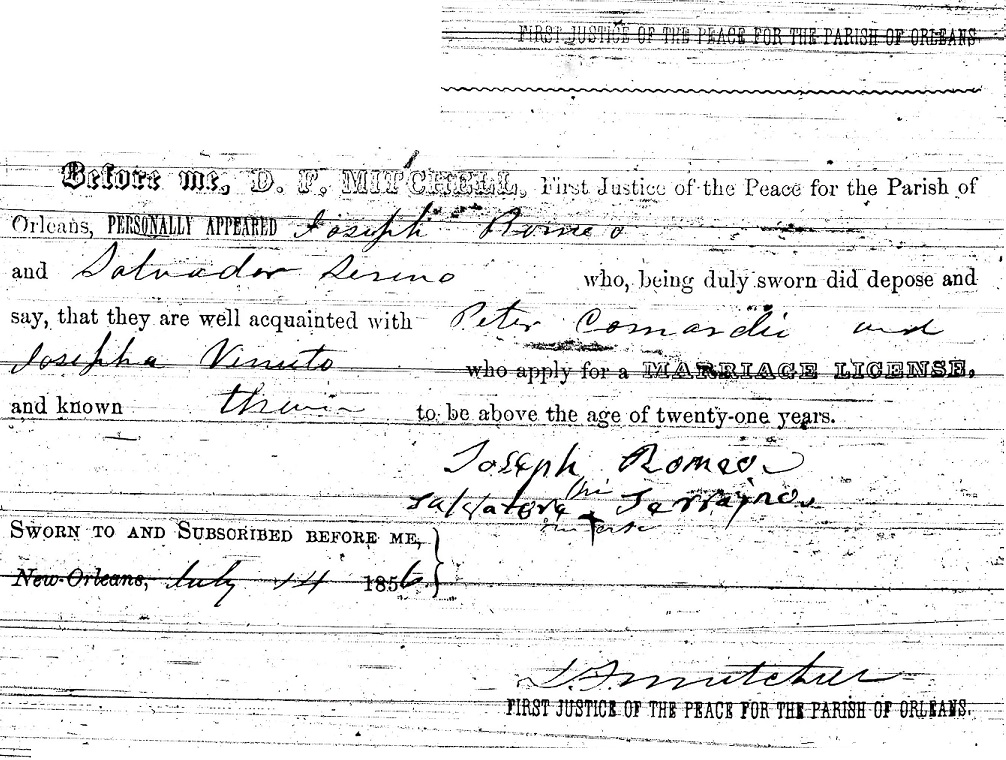 FIRST JUSTICE OF THE PEACE FOR THE PARISH OF ORLEANS
Before me, D. F. MITCHELL, First Justice of the Peace for the Parish of
Orleans, PERSONALLY APPEARED Joseph Romeo
and Salvador Sereno who, being duly sworn did depose and
say, that they are well acquainted with Peter Comardie and
Josepha Venuto who apply for a MARRIAGE LICENSE,
and known to be above the age of twenty-one years.
Joseph Romeo
his
SWORN TO AND SUBSCRIBED BEFORE ME,
New-Orleans, July 14 1856
FIRST JUSTICE OF THE PEACE FOR THE PARISH OF ORLEANS.